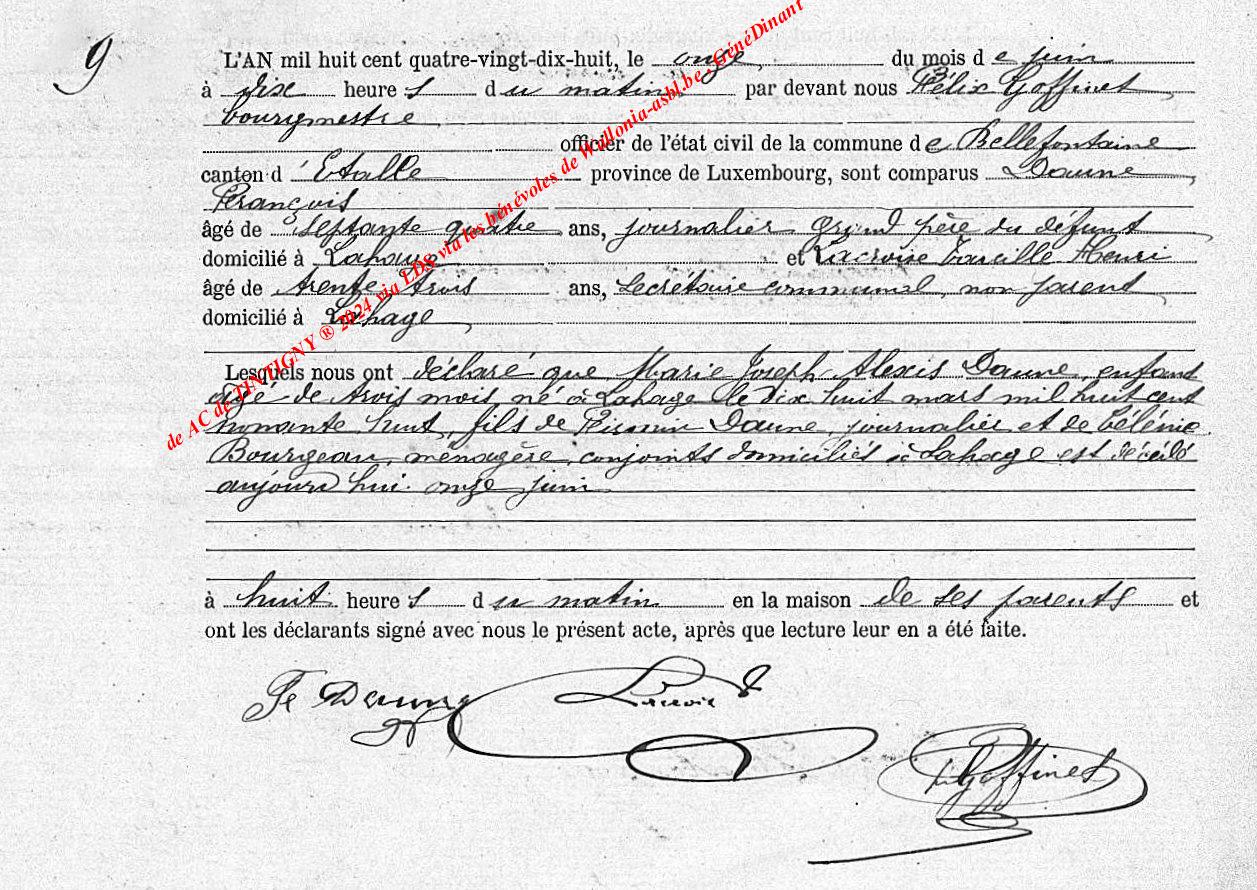 9
L'AN mil huit cent quatre-vingt-dix-huit, le onze du mois de juin
à dix heures du matin par devant nous Félix Goffinet,
bourgmestre
officier de l'état civil de la commune de Bellefontaine
canton d'Etalle province de Luxembourg, sont comparus Daune,
François
âgé de septante quatre ans, journalier grand père du défunt
domicilié à Lahage et Lacroix Henri
âgé de trente trois ans, secrétaire communal, non parent
domicilié à Lahage
Lesquels nous ont déclaré que Marie Joseph Alexis Daune, enfant
âgé de trois mois, né à Lahage le dix huit mars mil huit cent
nonante huit, fils de Daune, journalier et de Célénie
Bourgeau, ménagère, conjoints domiciliés à Lahage est décédé
aujourd'hui onze juin
à huit heures du matin en la maison de ses parents et
ont les déclarants signé avec nous le présent acte, après que lecture leur en a été faite.
Fs Daune
Lacroix
Goffinet
de AC de TINTIGNY ® 2024 via LDS via les bénévoles de Wallonia-asbl.be - GénéDinant